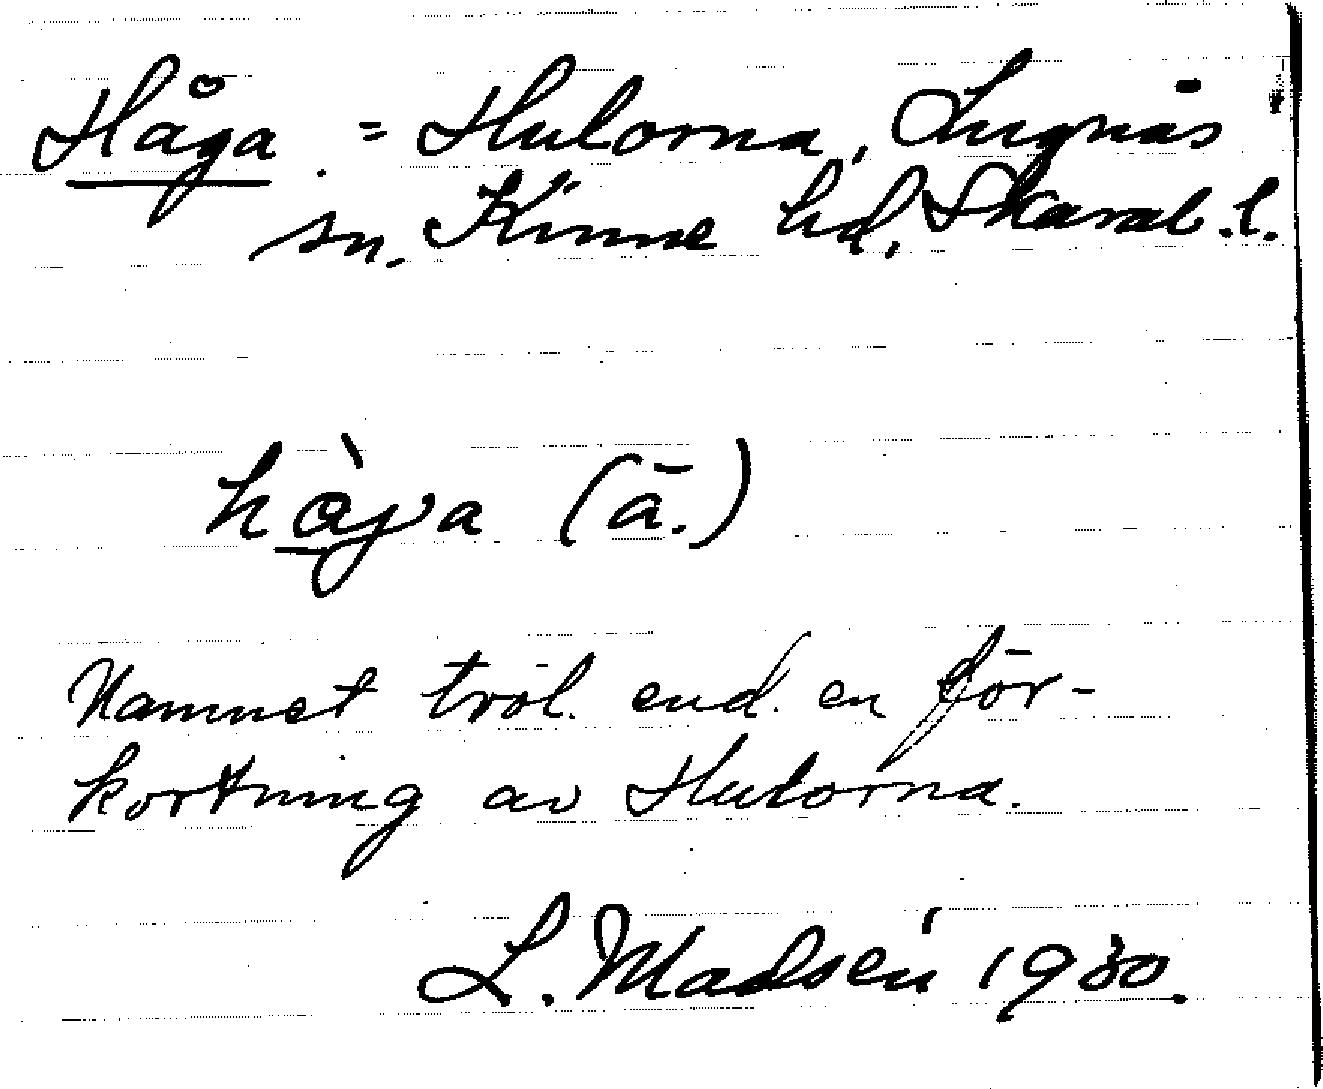 Håga = Hulorna, Lugnås
sn. Kinne hd, Skarab. l.
(ä.)
Namnet trol. end. en för-
kortning av Hulorna.
L. Madsén 1930.